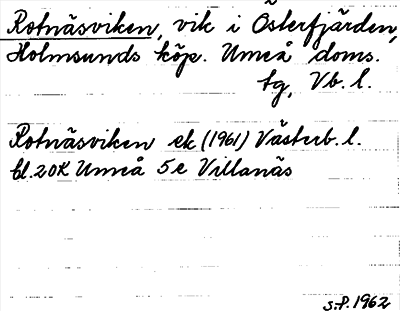 Rotnäsviken, vik i Österfjärden,
Holmsunds köp. Umeå doms.
tg, Vb. l.
Rotnäsviken ek (1961) Västerb. l.
bl. 20K Umeå 5e Villanäs
S.P. 1962